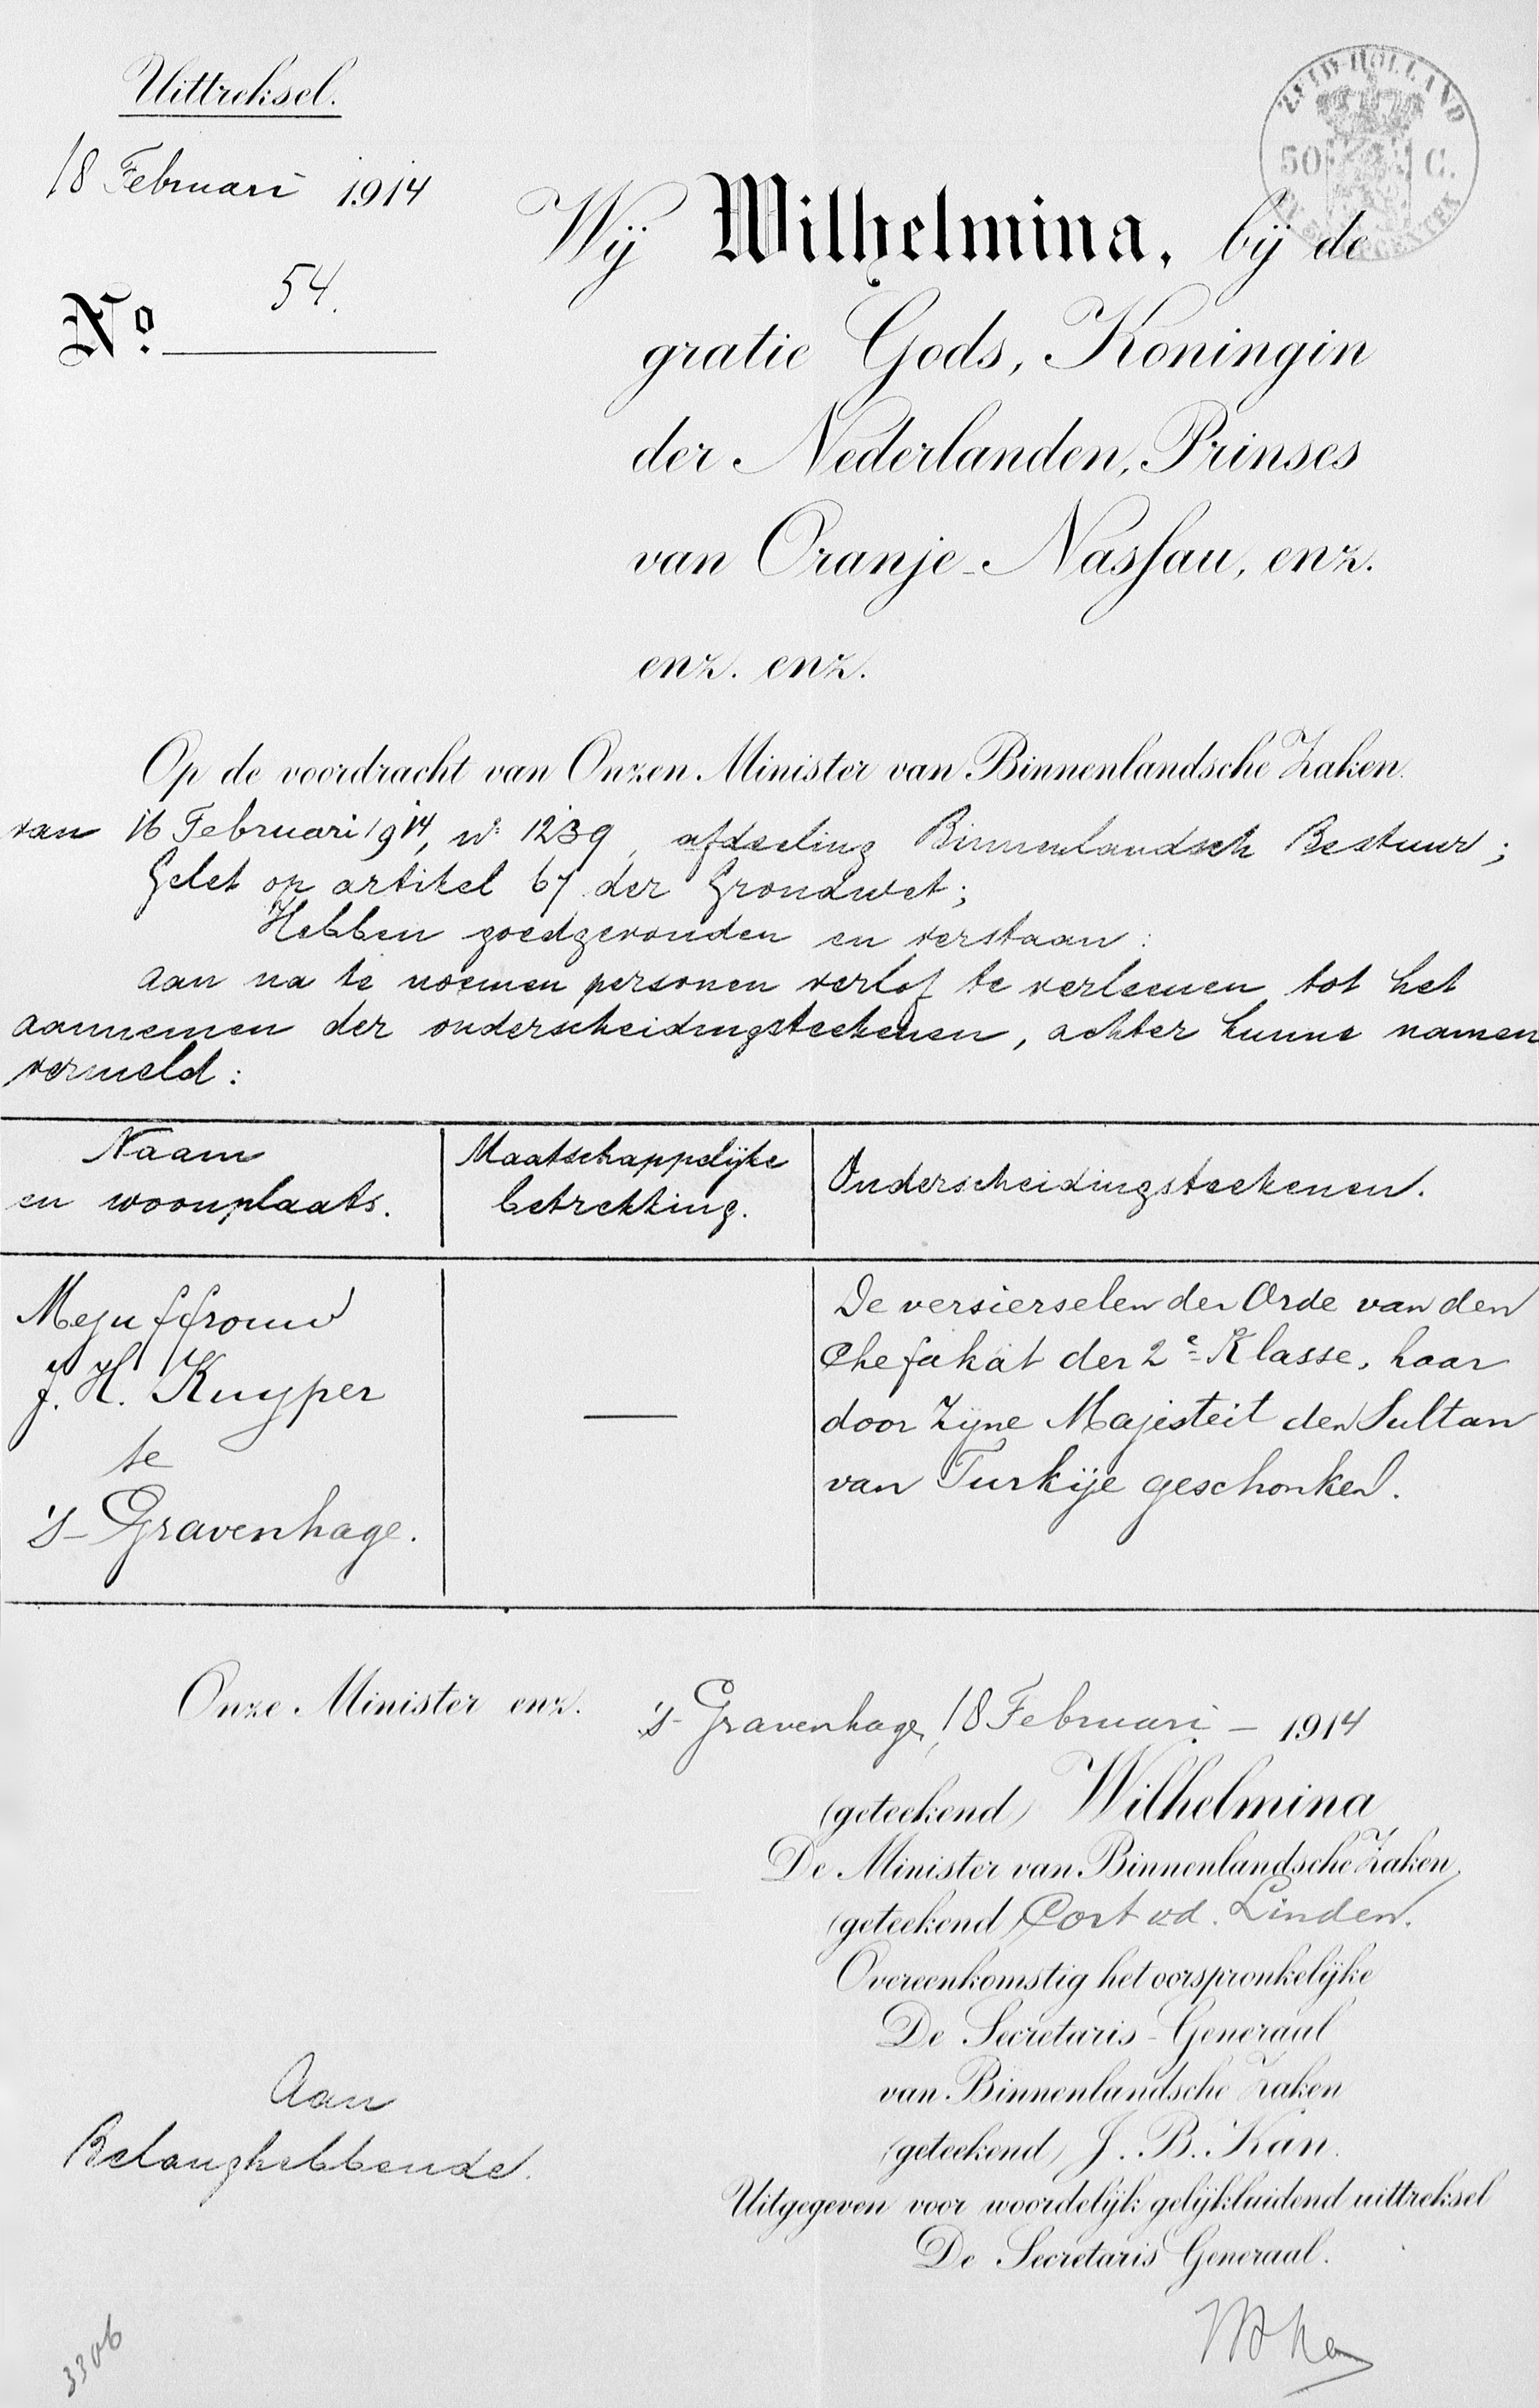 Uittreksel.
18 Februari 1914
No. 54.
ZUID-HOLLAND
50 C.
Wij Wilhelmina, bij de
gratie Gods, Koningin
der Nederlanden, Prinses
van Oranje-Nassau, enz.
enz. enz.
Op de voordracht van Onzen Minister van Binnenlandsche Zaken
van 16 Februari 1914, no 1239, afdeeling Binnenlandsch Bestuur;
Gelet op artikel 67 der Grondwet;
Hebben goedgevonden en verstaan:
aan na te noemen personen verlof te verleenen tot het
aannemen der onderscheidingsteekenen, achter hunne namen
vermeld:
Naam
en woonplaats.
Maatschappelijke
betrekking.
Onderscheidingsteekenen.
Mejuffrouw
J. H. Kuyper
te
's-Gravenhage.
—
De versierselen der Orde van den
Chefakat der 2e Klasse, haar
door Zijne Majesteit den Sultan
van Turkije geschonken.
Onze Minister enz.
's-Gravenhage, 18 Februari - 1914
(geteekend) Wilhelmina
De Minister van Binnenlandsche Zaken,
(geteekend) Cort vd. Linden.
Overeenkomstig het oorspronkelijke
De Secretaris-Generaal
van Binnenlandsche Zaken
(geteekend) J. B. Kan.
Uitgegeven voor woordelijk gelijkluidend uittreksel
De Secretaris Generaal.
Aan
Belanghebbende.
3306